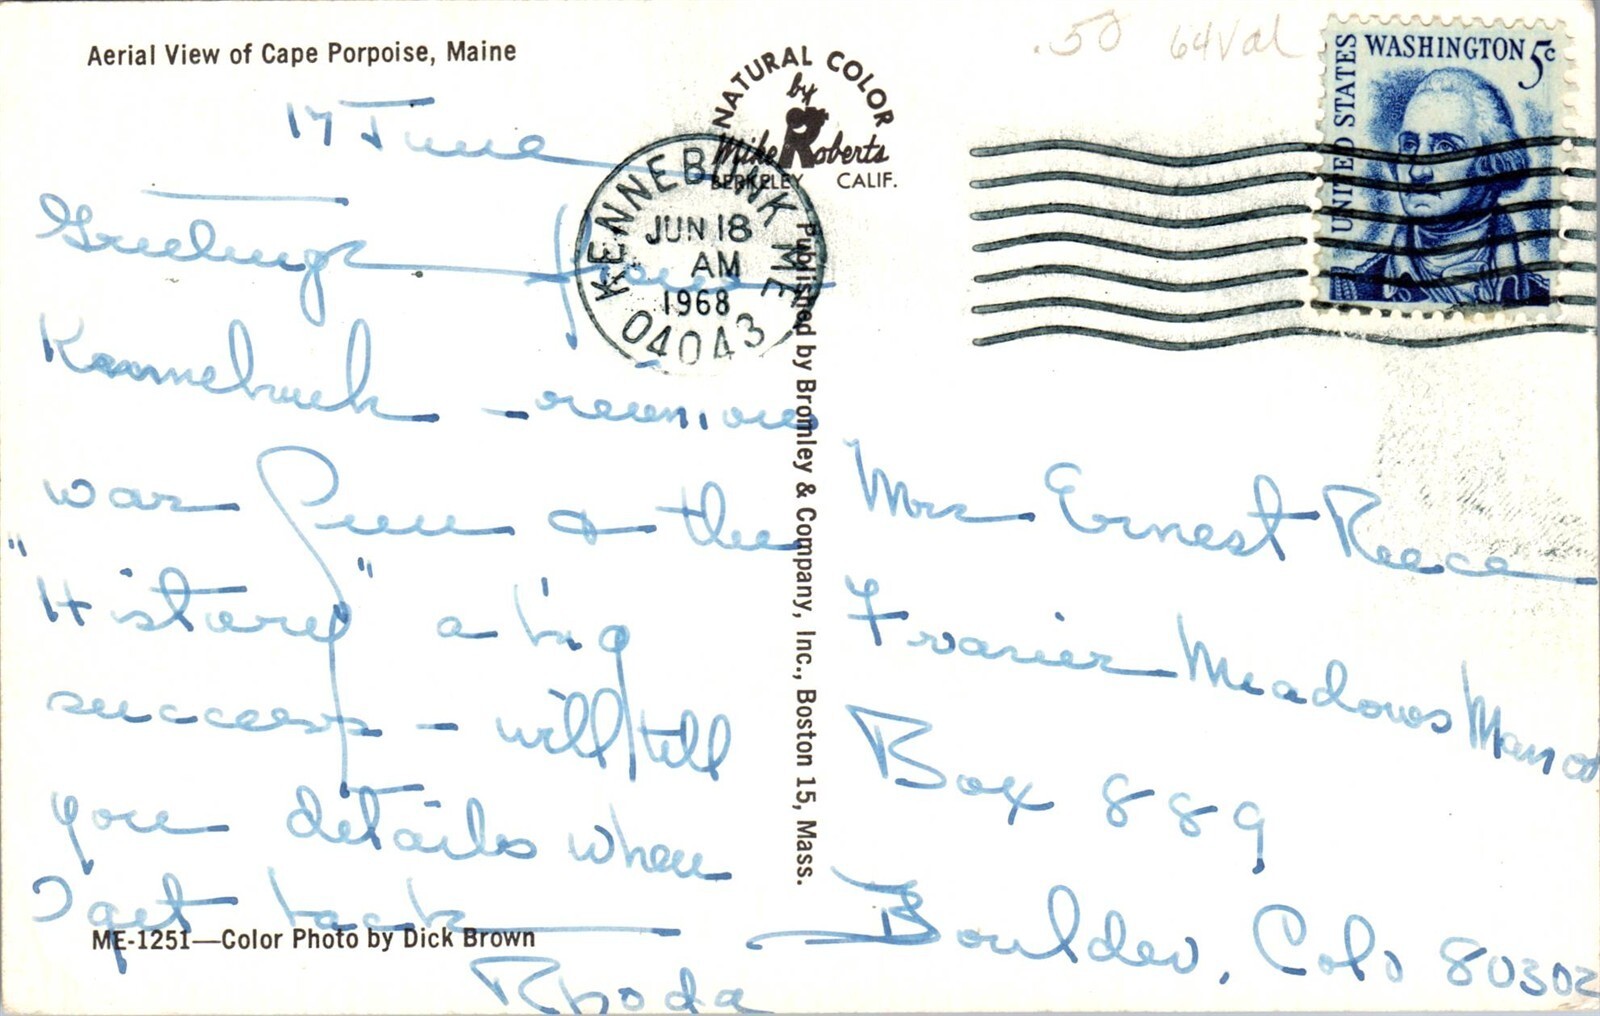 Aerial View of Cape Porpoise, Maine
.50 64Val
NATURAL COLOR
by
Mike Roberts
BERKELEY CALIF.
UNITED STATES
WASHINGTON 5c
KENNEBUNK ME
JUN 18
AM
1968
04043
17 June
Greetings from
Kennebunk - reunion
was fun & the
"History" a big
success - will tell
you details when
I get back
Rhoda
ME-1251—Color Photo by Dick Brown
Published by Bromley & Company, Inc., Boston 15, Mass.
Mrs Ernest Reece
Frasier Meadows Manor
Box 889
Boulder, Colo 80302